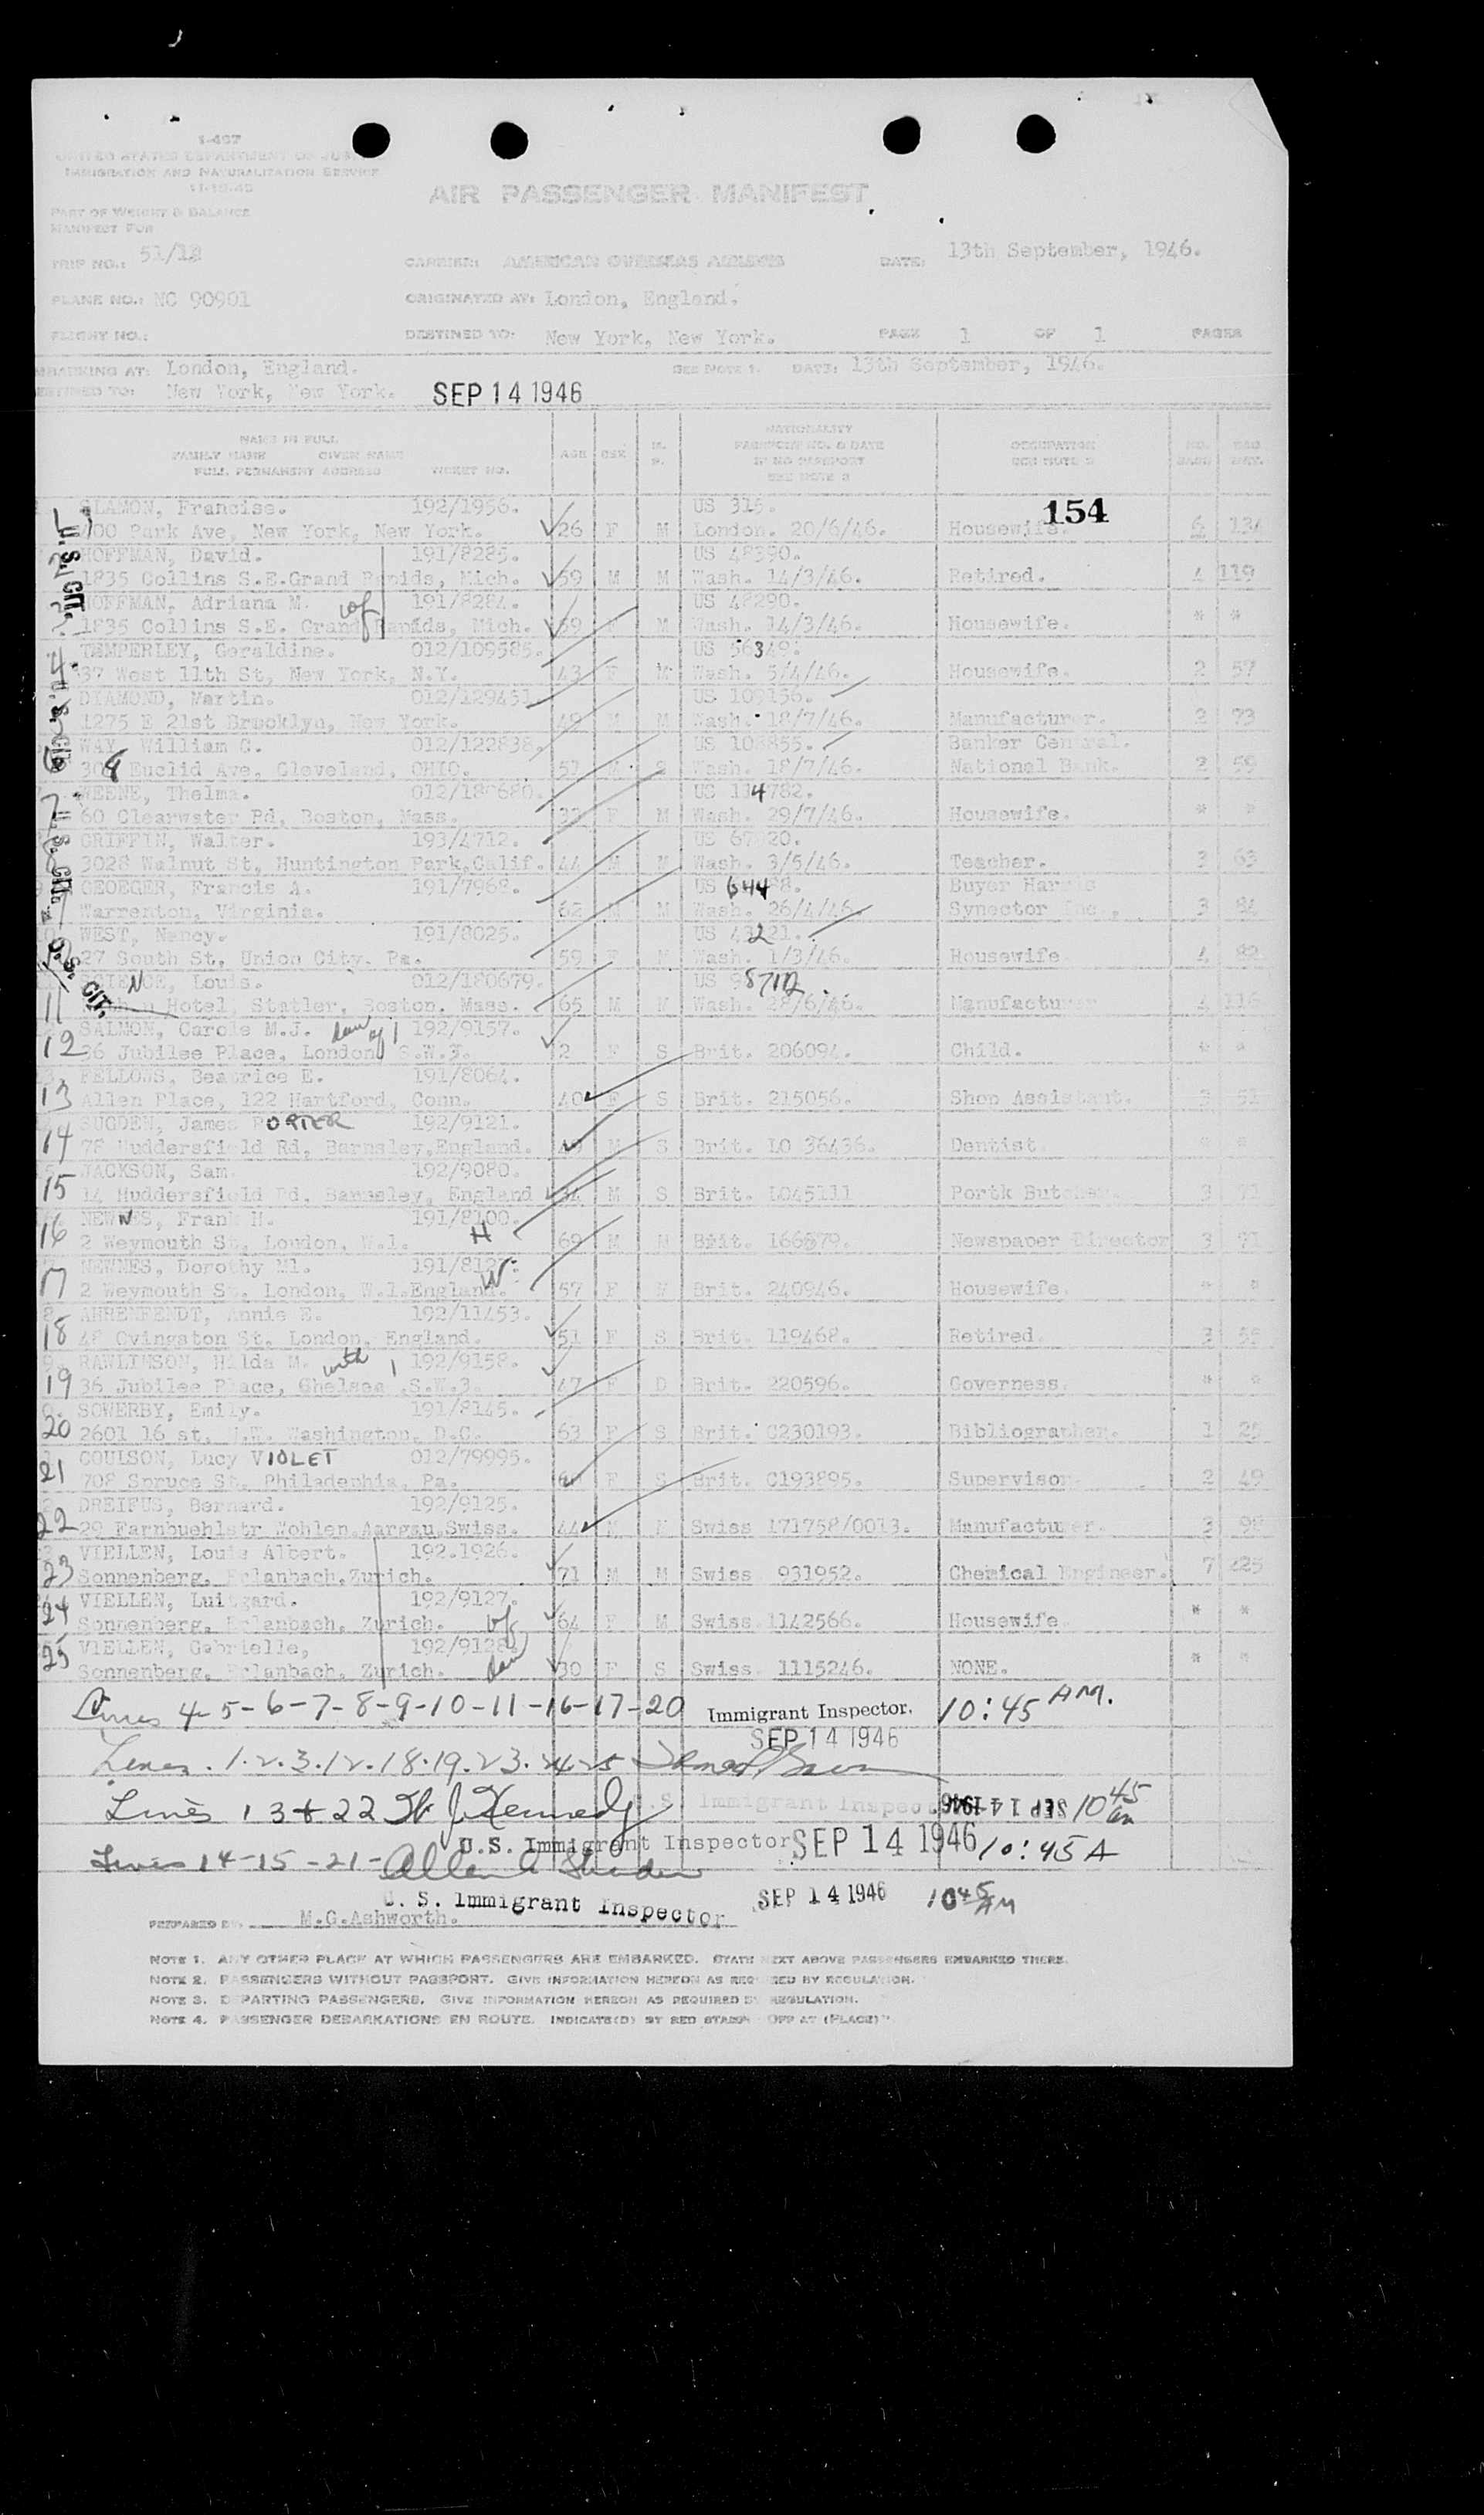 I-407
UNITED STATES DEPARTMENT OF JUSTICE
IMMIGRATION AND NATURALIZATION SERVICE
11-19-45
AIR PASSENGER MANIFEST
PART OF WEIGHT & BALANCE
MANIFEST FOR
TRIP NO.: 51/12 CARRIER: AMERICAN OVERSEAS AIRLINES DATE: 13th September, 1946.
PLANE NO.: NC 90901 ORIGINATED AT: London, England.
FLIGHT NO.: DESTINED TO: New York, New York. PAGE 1 OF 1 PAGES
EMBARKING AT: London, England. SEE NOTE 1. DATE: 13th September, 1946.
DESTINED TO: New York, New York. SEP 14 1946
NAME IN FULL
FAMILY NAME GIVEN NAME
FULL PERMANENT ADDRESS TICKET NO. AGE SEX M. S. NATIONALITY PASSPORT NO. & DATE IF NO PASSPORT SEE NOTE 2 OCCUPATION SEE NOTE 2 NO. BAGS BAG WGT.
154
SLAMON, Francise. 192/1956. US 315.
400 Park Ave, New York, New York. 26 F M London. 20/6/46. Housewife. 6 134
HOFFMAN, David. 191/8285. US 48390.
1835 Collins S.E.Grand Rapids, Mich. 59 M M Wash. 14/3/46. Retired. 4 119
HOFFMAN, Adriana M. wf 191/8284. US 48290.
1835 Collins S.E. Grand Rapids, Mich. 59 F M Wash. 14/3/46. Housewife. * *
TEMPERLEY, Geraldine. 012/109585. US 56349.
37 West 11th St, New York, N.Y. 43 F M Wash. 5/4/46. Housewife. 2 57
DIAMOND, Martin. 012/129451. US 109156.
1275 E 21st Brooklyn, New York. 49 M M Wash. 18/7/46. Manufacturer. 2 73
WAY, William C. 012/122838. US 10 855. Banker Central.
Euclid Ave, Cleveland, OHIO. 57 M S Wash. 18/7/46. National Bank. 2 59
WEENE, Thelma. 012/180680. US 114782.
60 Clearwater Rd, Boston, Mass. 33 F M Wash. 29/7/46. Housewife. * *
GRIFFIN, Walter. 193/4712. US 67 20.
3028 Walnut St, Huntington Park,Calif. 44 M M Wash. 3/5/46. Teacher. 3 63
GEOEGER, Francis A. 191/7968. US 64488. Buyer Harris
Warrenton, Virginia. 62 M M Wash. 26/4/46. Synector Inc., 3 84
WEST, Nancy. 191/8025. US 43221.
27 South St, Union City. Pa. 59 F M Wash. 1/3/46. Housewife. 4 82
Louis. 012/180679. US 98712.
11 Hotel, Statler, Boston, Mass. 65 M M Wash. 28/6/46. Manufacturer 4 116
SALMON, Carole M.J. dau of 1 192/9157.
12 36 Jubilee Place, London S.W.3. 2 F S Brit. 206094. Child. * *
FELLOWS, Beatrice E. 191/8064.
13 Allen Place, 122 Hartford, Conn. 40 F S Brit. 215056. Shop Assistant. 3 51
SUGDEN, James PORTER 192/9121.
14 78 Huddersfield Rd, Barnsley,England. 49 M S Brit. LO 36436. Dentist * *
JACKSON, Sam 192/9080.
15 14 Huddersfield Rd. Barnsley, England 34 M S Brit. LO45111 Portk Butcher. 3 71
NEWNES, Frank H. 191/8100.
16 2 Weymouth St, London, W.1. H 69 M M Brit. 166579. Newspaper Director 3 71
NEWNES, Dorothy M1. 191/812
17 2 Weymouth St, London, W.1.England. W 57 F M Brit. 240946. Housewife. * *
AHRENFENDT, Annie E. 192/11453.
18 48 Ovingston St, London, England. 51 F S Brit. 119468. Retired. 3 55
RAWLINSON, Hilda M. with 1 192/9158.
19 36 Jubilee Place, Chelsea .S.W.3. 47 F D Brit. 220596. Governess. * *
SOWERBY, Emily. 191/8145.
20 2601 16 st, N.W. Washington, D.C. 63 F S Brit. C230193. Bibliographer. 1 25
COULSON, Lucy VIOLET 012/79995.
21 708 Spruce St, Philadephia, Pa. F S Brit. C193895. Supervisor 2 49
DREIFUS, Bernard. 192/9125.
22 29 Farnbuehlstr Wohlen.Aargau,Swiss. 44 M M Swiss 171758/0013. Manufacturer. 3 98
VIELLEN, Louis Albert. 192.1926.
23 Sonnenberg, Erlanbach,Zurich. 71 M M Swiss 931952. Chemical Engineer. 7 225
VIELLEN, Luitgard. 192/9127.
24 Sonnenberg, Erlanbach, Zurich. wf 64 F M Swiss 1142566. Housewife * *
VIELLEN, Gabrielle, 192/9128.
25 Sonnenberg, Erlanbach, Zurich. dau 30 F S Swiss 1115246. NONE. * *
Lines 4-5-6-7-8-9-10-11-16-17-20 Immigrant Inspector. 10:45 AM.
SEP 14 1946
Lines. 1.2.3.12.18.19.23.24.25
Lines 13+22 W J Kennedy U.S. Immigrant Inspector SEP 14 1946 10 45 am
U.S. Immigrant Inspector SEP 14 1946 10:45 A
Lines 14-15-21-
U. S. Immigrant Inspector SEP 14 1946 10 45 AM
PREPARED BY M.G.Ashworth.
NOTE 1. ANY OTHER PLACE AT WHICH PASSENGERS ARE EMBARKED. STATE NEXT ABOVE PASSENGERS EMBARKED THERE.
NOTE 2. PASSENGERS WITHOUT PASSPORT. GIVE INFORMATION HEREON AS REQUIRED BY REGULATION.
NOTE 3. DEPARTING PASSENGERS. GIVE INFORMATION HEREON AS REQUIRED BY REGULATION.
NOTE 4. PASSENGER DEBARKATIONS EN ROUTE. INDICATE(D) BY RED STAMP "OFF AT (PLACE)"